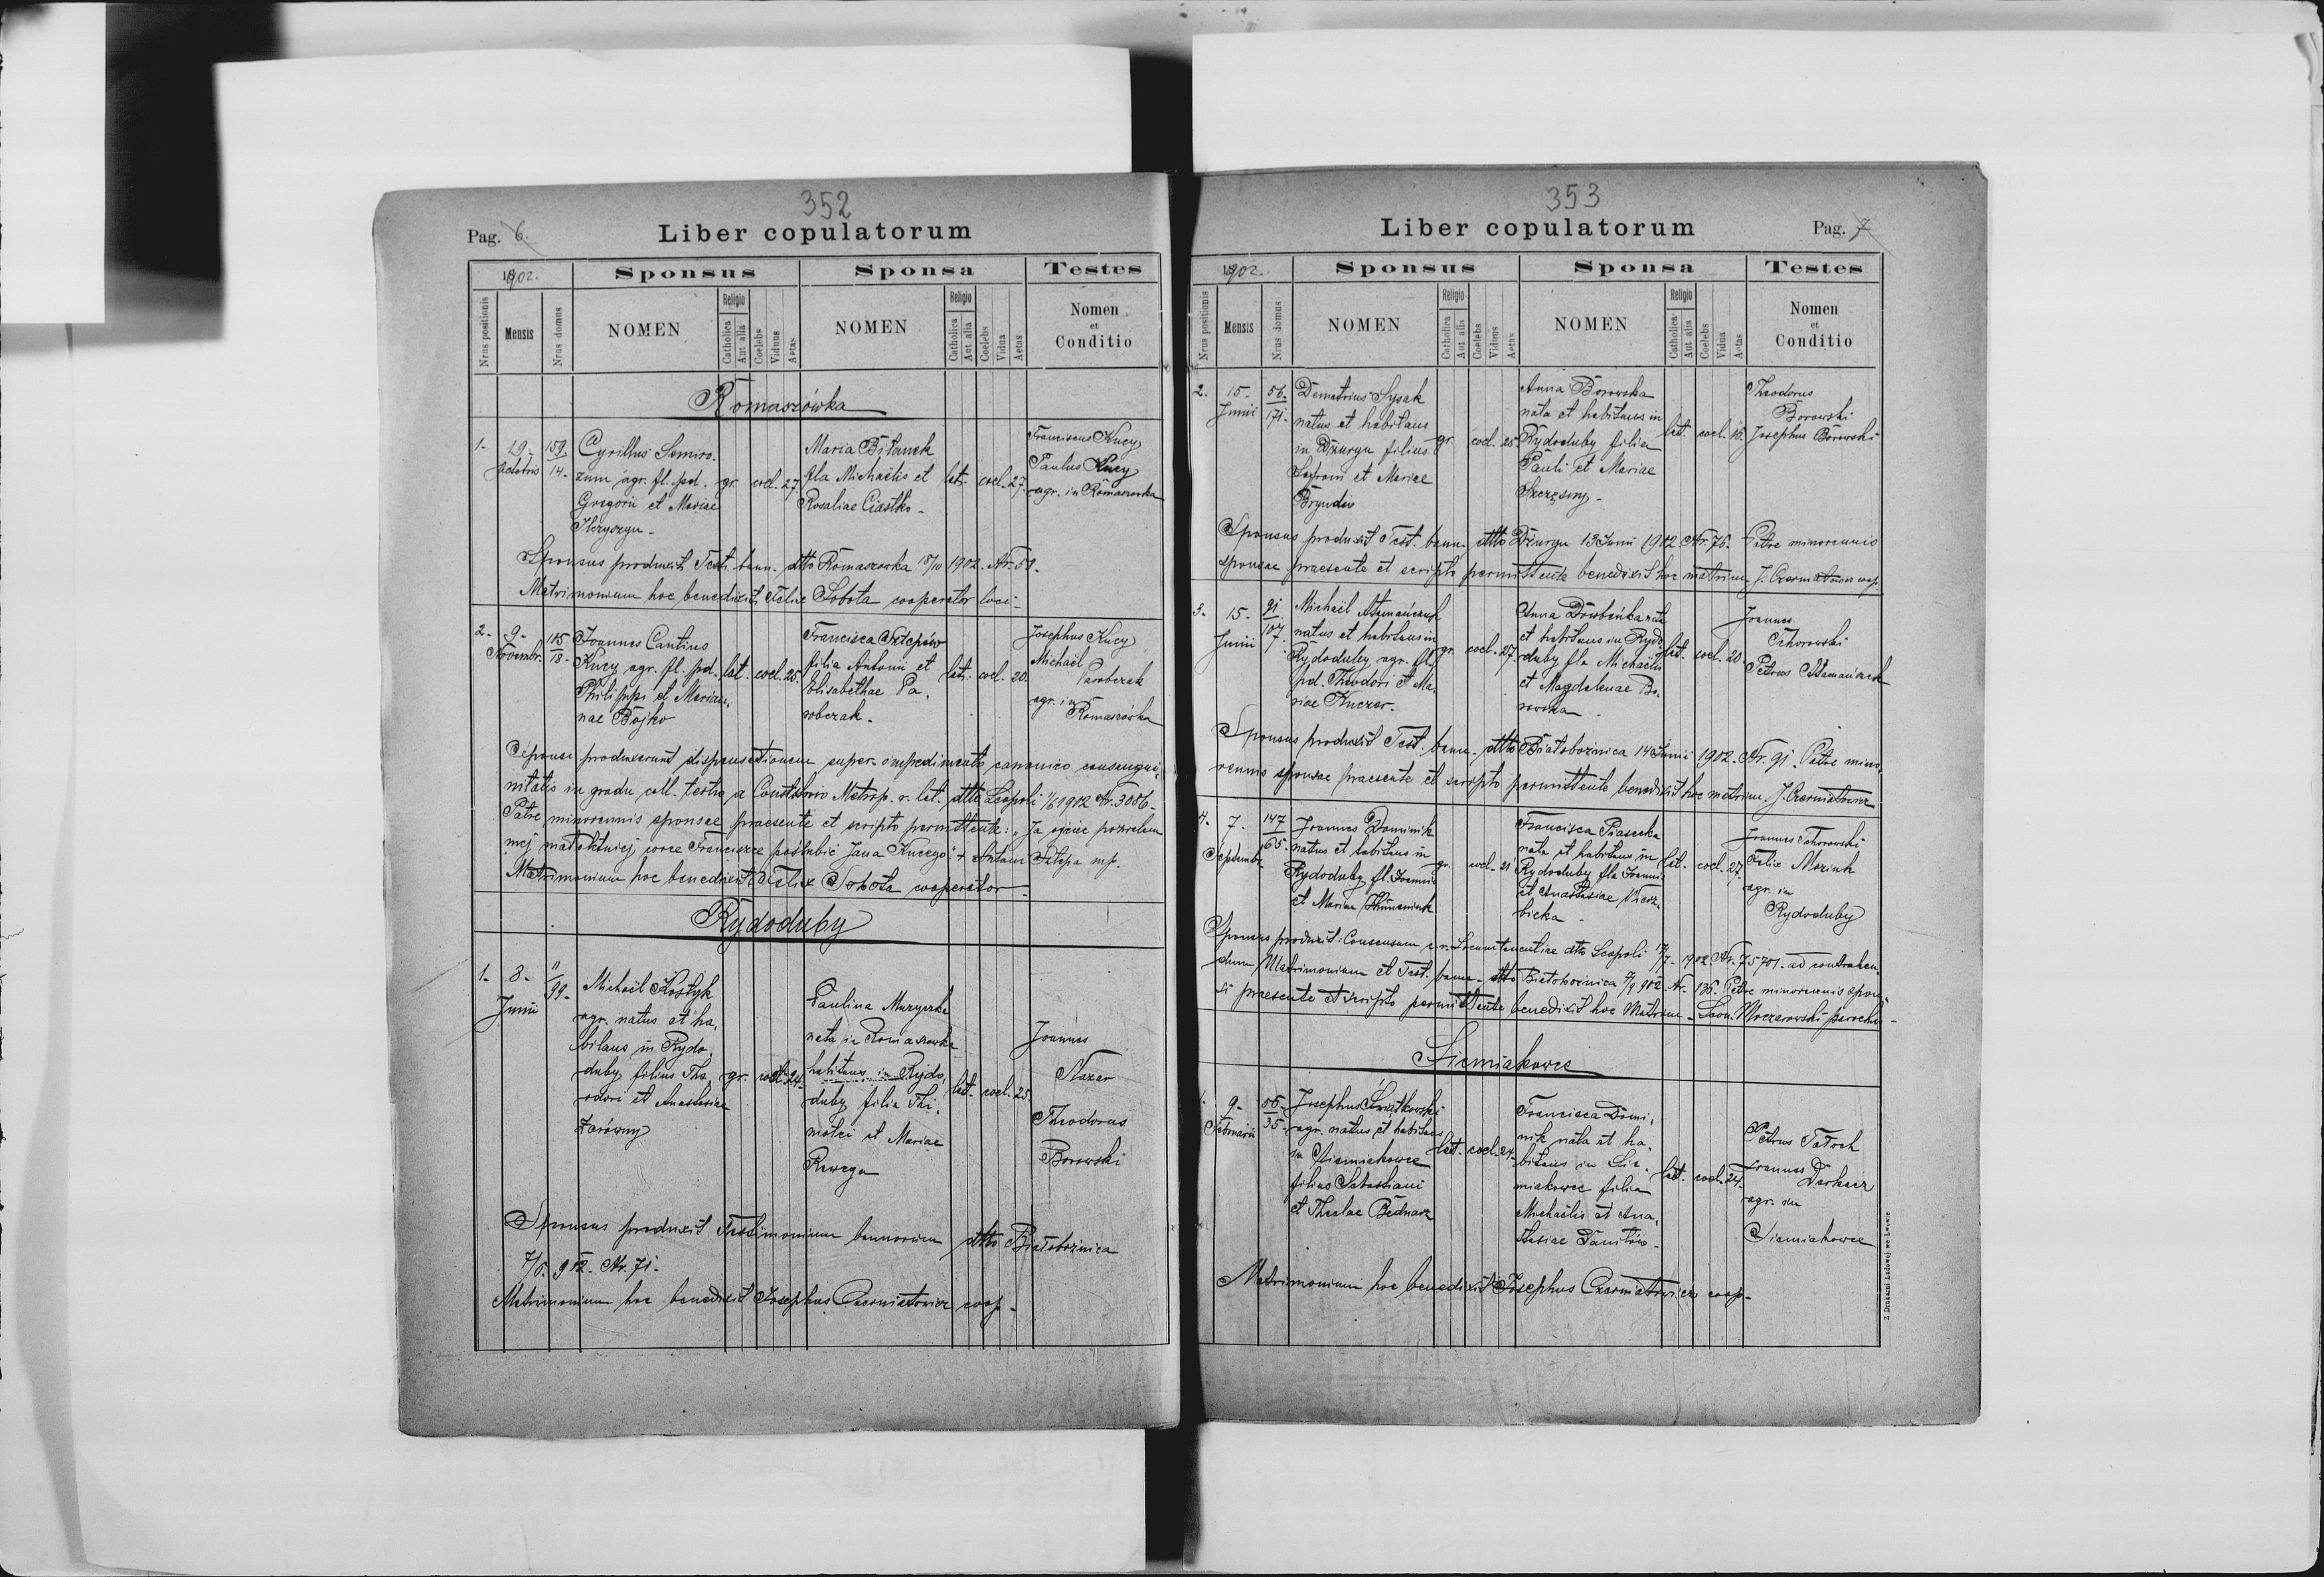 352
Pag. 6.
Liber copulatorum
1902.
Sponsus
Sponsa
Testes
Nrus positionis
Mensis
Nrus domus
NOMEN
Religio
Catholica
Aut alia
Coelebs
Viduus
Aetas
NOMEN
Religio
Catholica
Aut alia
Coelebs
Vidua
Aetas
Nomen
et
Conditio
Romaszówka
1. 19. Octobris 159/14.
Cyrillus
agr. fl. pd.
Gregorii et Mariae
gr. coel. 27.
Maria
fla Michaëlis et
Rosaliae Ciastko
lat. coel. 27.
Franciscus Kucy
Paulus Kucy
agr. in Romaszowka
Sponsus produxit Test. bann. dtto Romaszowka 18/10 1902. Nr. 51.
Matrimonium hoc benedixit Felix Sobota cooperator loci
2. 9. Novembr. 105/18.
Joannes Cantius
Kucy agr. fl. pd.
Philippi et Marian
nae Bojko
lat. coel. 25.
Francisca
filia Antonii et
Elisabethae Pa
robczak.
lat. coel. 20.
Josephus Kucy
Michaël
Parobczak
agr. in
Romaszówka
Sponsi produxerunt dispensationem super impedimento canonico consangui
nitatis in gradu coll. tertio a Consistorio Metrop. r. lat. dtto Leopoli 1/6 1902 Nr. 3086
Patre minorennis sponsae praesente et scripto permittente: „Ja ojciec pozwalam
mej małoletniej córce Franciszce poślubić Jana Kucego" + Antoni mp.
Matrimonium hoc benedixit Felix Sobota cooperator
Rydoduby
1. 8. Junii 11/99.
Michaël Kostyk
agr. natus et ha
bitans in Rydo
duby filius The
odori et Anastasiae
Zarówny
gr. coel. 24.
Paulina Muzyczka
nata in Romaszowka
habitans in Rydo
duby filia Thi
motei et Mariae
Rewega
lat. coel. 25.
Joannes
Nazar
Theodorus
Borowski
Sponsus produxit Testimonium bannorum dtto Białobożnica
7/6. 902. Nr. 71.
Matrimonium hoc benedixit Josephus Czerniatowicz coop.
353
Liber copulatorum
Pag. 7
1902.
Sponsus
Sponsa
Testes
Nrus positionis
Mensis
Nrus domus
NOMEN
Religio
Catholica
Aut alia
Coelebs
Viduus
Aetas
NOMEN
Religio
Catholica
Aut alia
Coelebs
Vidua
Aetas
Nomen
et
Conditio
2. 15. Junii 56/171.
Demetrius Sysak
natus et habitans
in Dżuryn filius
et Mariae
gr. coel. 25.
Anna Borowska
nata et habitans in
Rydoduby filia
Pauli et Mariae
Szczęsny.
lat. coel.
Theodorus
Borowski
Josephus Borowski
Sponsus produxit Test. bann. dtto Dżuryn 13 Junii 1902 Nr. 76. Patre minorennis
sponsae praesente et scripto permittente benedixit hoc matrim. J. Czerniatowicz coop.
3. 15. Junii 91/107.
Michaël Atamańczuk
natus et habitans in
Rydoduby agr. fl.
pd. Theodori et Ma
riae Kuczer.
gr. coel. 27.
Anna nata
et habitans in Rydo
duby fla Michaëlis
et Magdalenae Bo
rowska
lat. coel. 20.
Joannes
Petrus Atamańczuk
Sponsus produxit Test. bann. dtto Białobożnica 14 Junii 1902. Nr. 91. Patre mino
rennis sponsae praesente et scripto permittente benedixit hoc matrim. J. Czerniatowicz
4. 7. Septembr. 147/165.
Joannes Dominik
natus et habitans in
Rydoduby fl. Joannis
et Mariae
gr. coel. 21.
Francisca Piasecka
nata et habitans in
Rydoduby fla Joannis
et Anastasiae Wierz
bicka
lat. coel. 27.
Joannes
Felix Maziuk
agr. in
Rydoduby
Sponsus produxit: Consensum c. r. Locumtenentiae dtto Leopoli 17/7. 1902 Nr. 75701. ad contrahen
dum Matrimonium et Test. bann. dtto Białobożnica 902 Nr. 135. Patre minorennis spon
si praesente et scripto permittente benedixit hoc Matrim. Leon. Moczarowski parochus
Siemiakowce
1. 9. Februarii 56/35.
Josephus Świątkowski
agr. natus et habitans
in Siemiakowce
filius Sebastiani
et Theclae Bednarz
lat. coel. 24.
Francisca Domi
nik nata et ha
bitans in Sie
miakowce filia
Michaëlis et Ana
stasiae Daniłów
lat. coel. 24.
Petrus
Joannes
Derkacz
agr. in
Siemiakowce
Matrimonium hoc benedixit Josephus Czerniatowicz coop.
Z Drukarni Ludowej we Lwowie